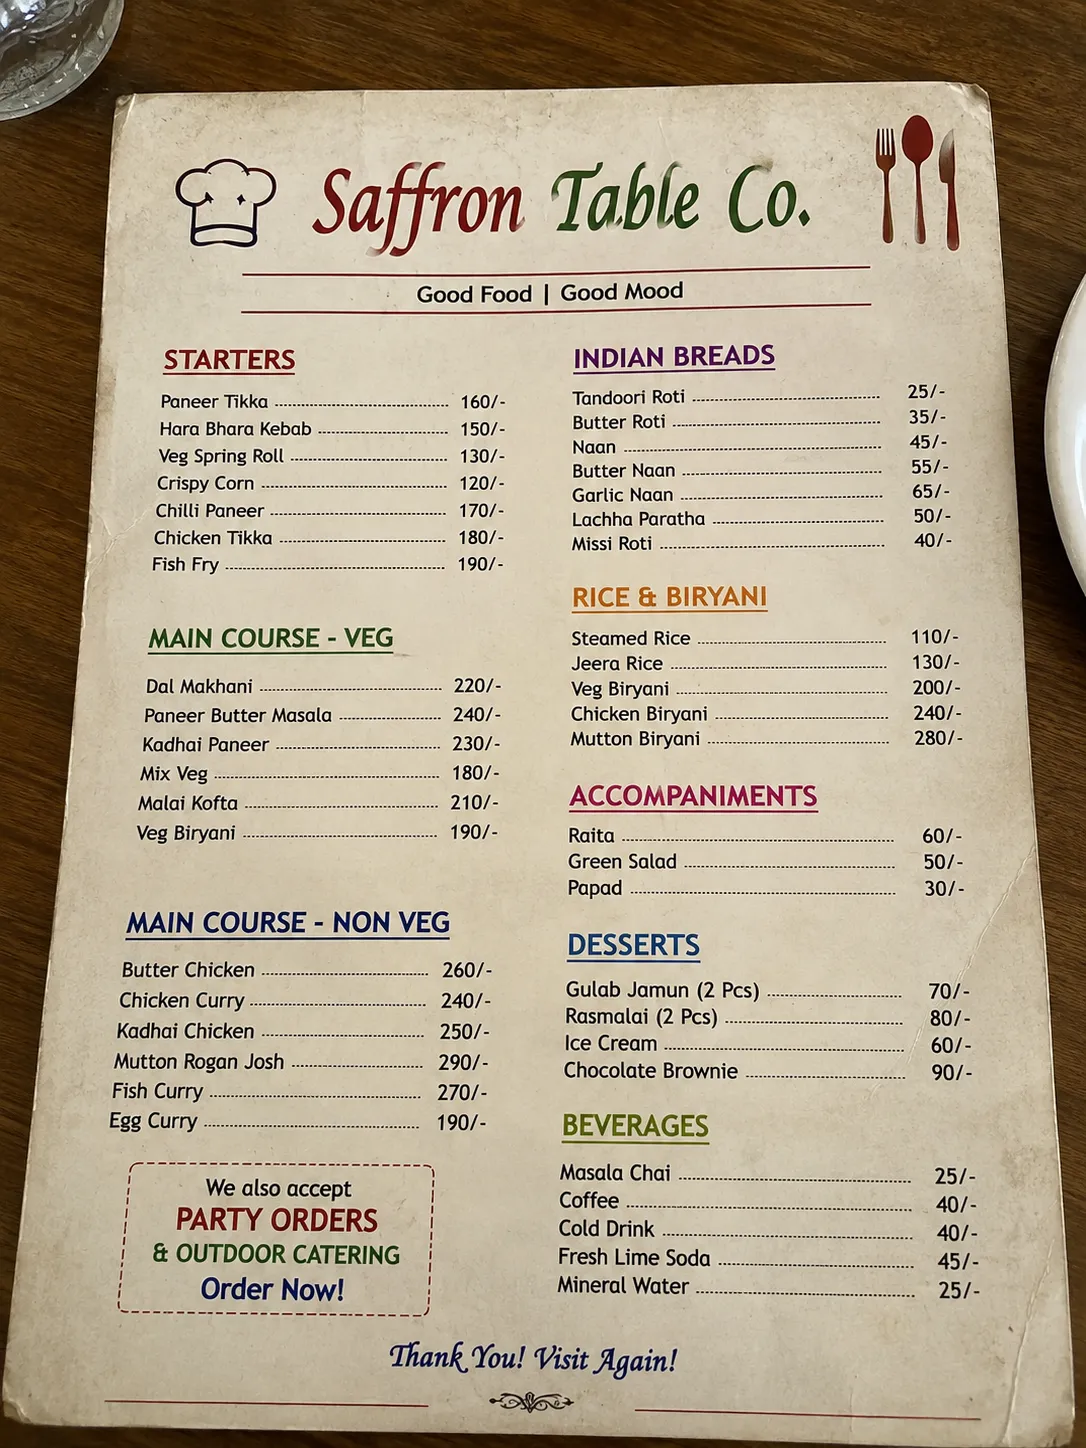 Saffron Table Co.
Good Food | Good Mood
STARTERS
Paneer Tikka 160/-
Hara Bhara Kebab 150/-
Veg Spring Roll 130/-
Crispy Corn 120/-
Chilli Paneer 170/-
Chicken Tikka 180/-
Fish Fry 190/-
MAIN COURSE - VEG
Dal Makhani 220/-
Paneer Butter Masala 240/-
Kadhai Paneer 230/-
Mix Veg 180/-
Malai Kofta 210/-
Veg Biryani 190/-
MAIN COURSE - NON VEG
Butter Chicken 260/-
Chicken Curry 240/-
Kadhai Chicken 250/-
Mutton Rogan Josh 290/-
Fish Curry 270/-
Egg Curry 190/-
We also accept
PARTY ORDERS
& OUTDOOR CATERING
Order Now!
INDIAN BREADS
Tandoori Roti 25/-
Butter Roti 35/-
Naan 45/-
Butter Naan 55/-
Garlic Naan 65/-
Lachha Paratha 50/-
Missi Roti 40/-
RICE & BIRYANI
Steamed Rice 110/-
Jeera Rice 130/-
Veg Biryani 200/-
Chicken Biryani 240/-
Mutton Biryani 280/-
ACCOMPANIMENTS
Raita 60/-
Green Salad 50/-
Papad 30/-
DESSERTS
Gulab Jamun (2 Pcs) 70/-
Rasmalai (2 Pcs) 80/-
Ice Cream 60/-
Chocolate Brownie 90/-
BEVERAGES
Masala Chai 25/-
Coffee 40/-
Cold Drink 40/-
Fresh Lime Soda 45/-
Mineral Water 25/-
Thank You! Visit Again!